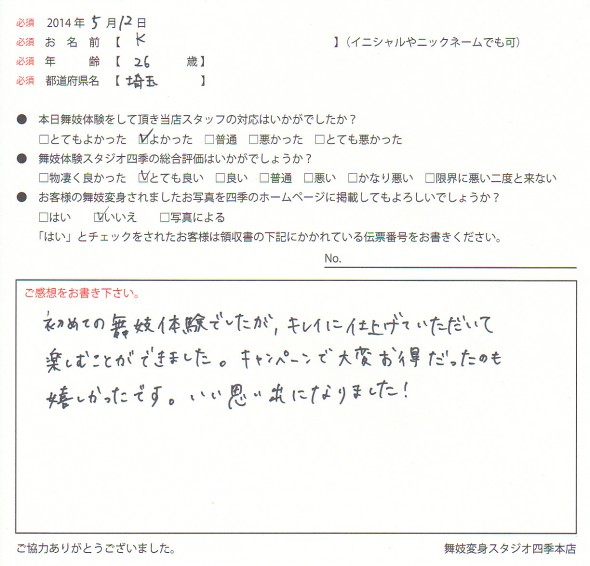 必須 2014年 5月12日
必須 お名前【 K 】(イニシャルやニックネームでも可)
必須 年齢【 26 歳】
必須 都道府県名【 埼玉 】
● 本日舞妓体験をして頂き当店スタッフの対応はいかがでしたか?
□とてもよかった ☑よかった □普通 □悪かった □とても悪かった
● 舞妓体験スタジオ四季の総合評価はいかがでしょうか?
□物凄く良かった ☑とても良い □良い □普通 □悪い □かなり悪い □限界に悪い二度と来ない
● お客様の舞妓変身されましたお写真を四季のホームページに掲載してもよろしいでしょうか?
□はい ☑いいえ □写真による
「はい」とチェックをされたお客様は領収書の下記にかかれている伝票番号をお書きください。
No.
ご感想をお書き下さい。
初めての舞妓体験でしたが、キレイに仕上げていただいて
楽しむことができました。キャンペーンで大変お得だったのも
嬉しかったです。いい思い出になりました!
ご協力ありがとうございました。 舞妓変身スタジオ四季本店